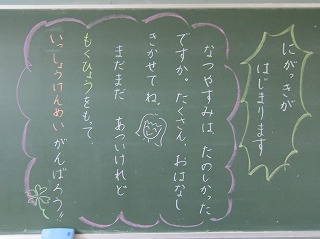 にがっきが
はじまります
なつやすみは、たのしかった
ですか。たくさん、おはなし
きかせてね。
まだまだ あついけれど
もくひょうをもって、
いっしょうけんめいがんばろう!!